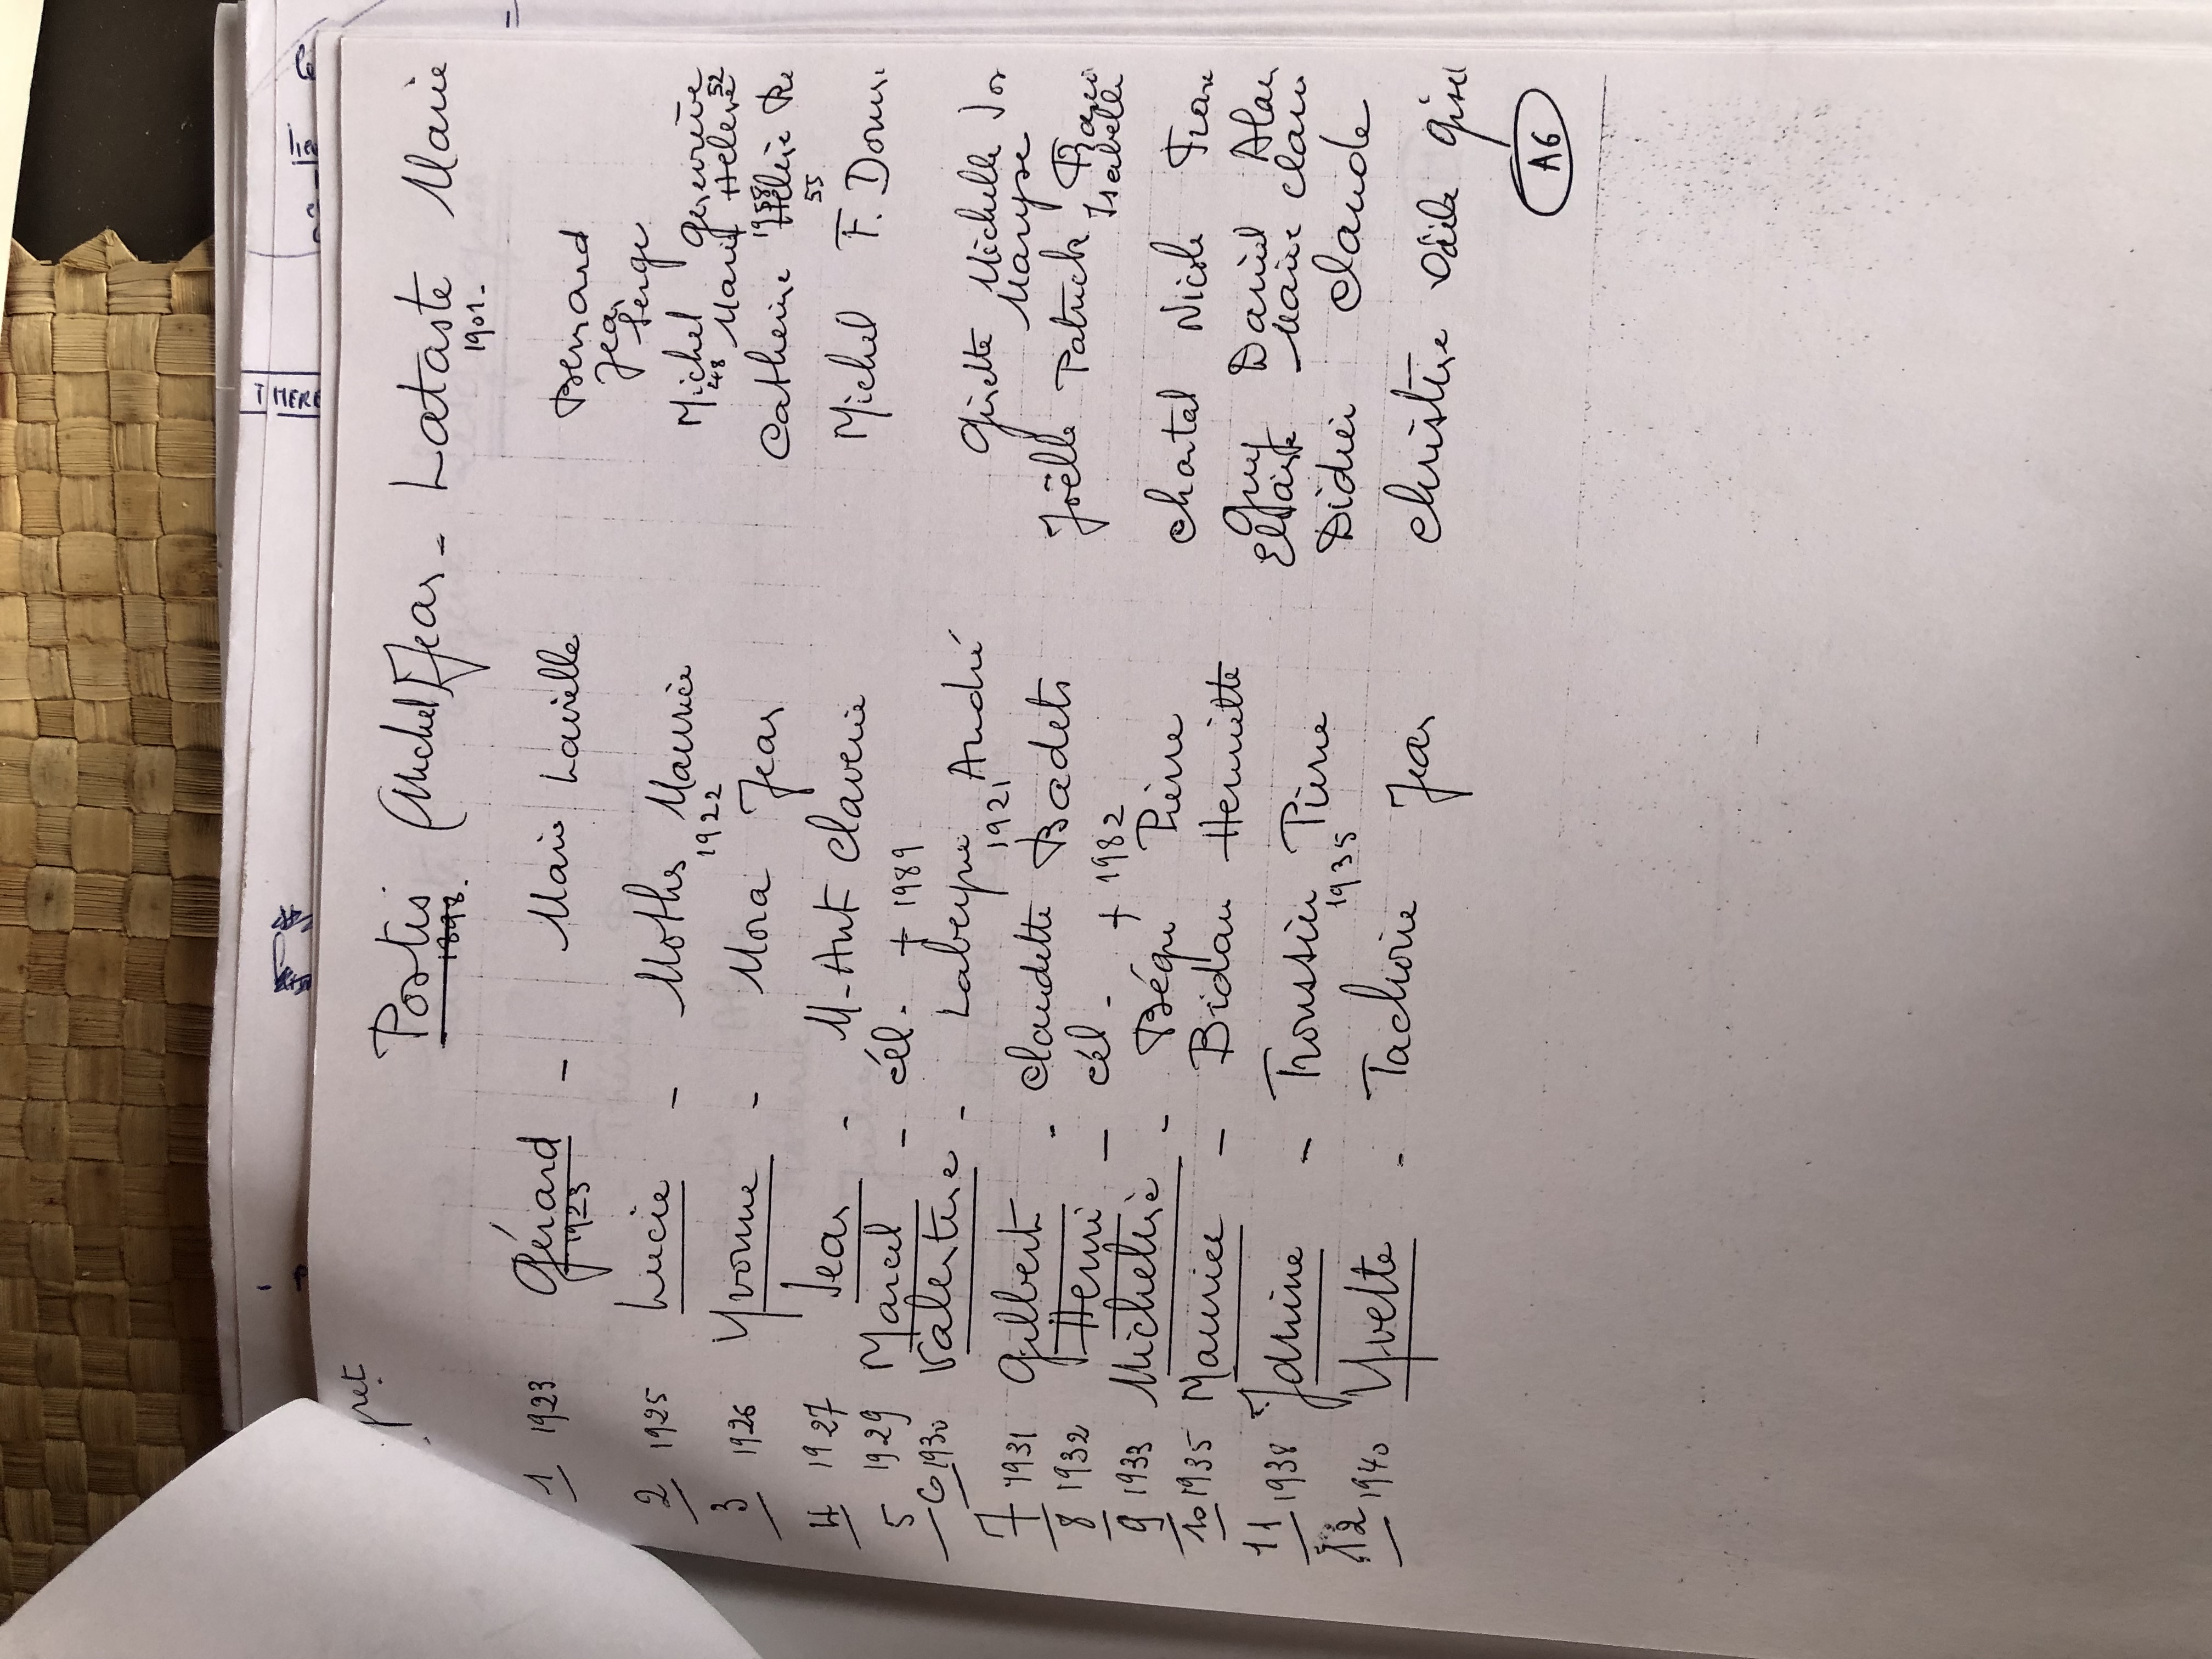 Postis (Michel) Jean - Lataste Marie
1898. 1901.
1 1923 Gérard - Marie Lavielle Bernard
1923 Jean
Serge
2 1925 Lucie - Moths Maurice Michel Geneviève
1922 48 Marie Hélène 52
3 1926 Yvonne - Mora Jean Catherine Hélène
55
4 1927 Jean - M-Ant Claverie Michel F. Domi
5 1929 Marcel - cél. + 1989
6 1930 Valentine - Labeyrie André Ginette Michelle
1921 Maryse
7 1931 Gilbert - Claudette Badets Joëlle Patrick
Isabelle
8 1932 Henri - cél. + 1982
9 1933 Micheline - Béqu Pierre Chantal Nicole Fran
10 1935 Maurice - Bidau Henriette Guy Daniel Alain
Marie Clau
11 1938 Janine - Troussin Pierre Didier Claude
1935
12 1940 Yvette - Tachoire Jean Christine Odile Gisel
A6
THERE